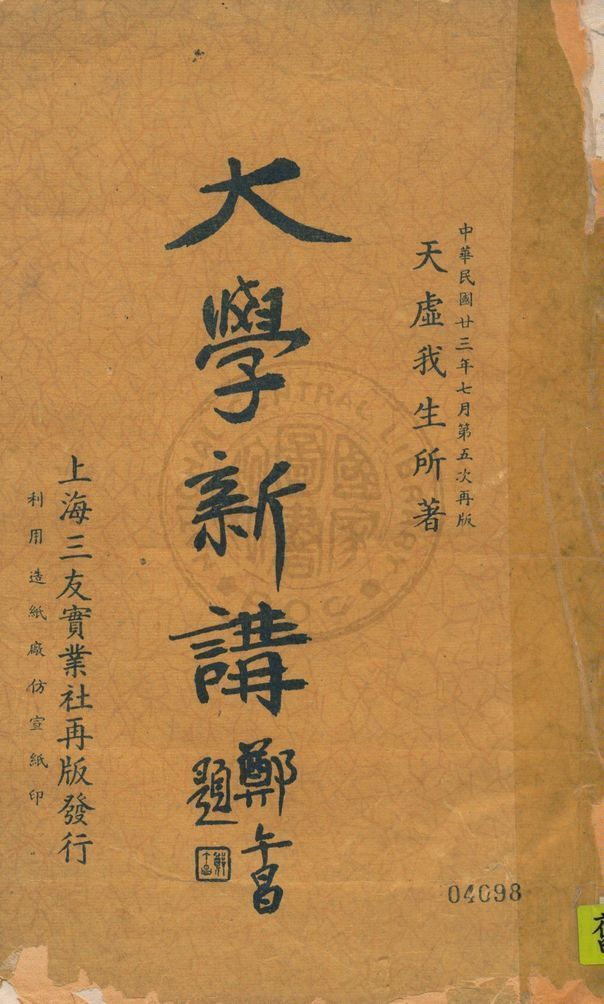 中華民國廿三年七月第五次再版
天虛我生所著
大學新講
鄭午昌
題
上海三友實業社再版發行
利用造紙廠仿宣紙印
04098
舊